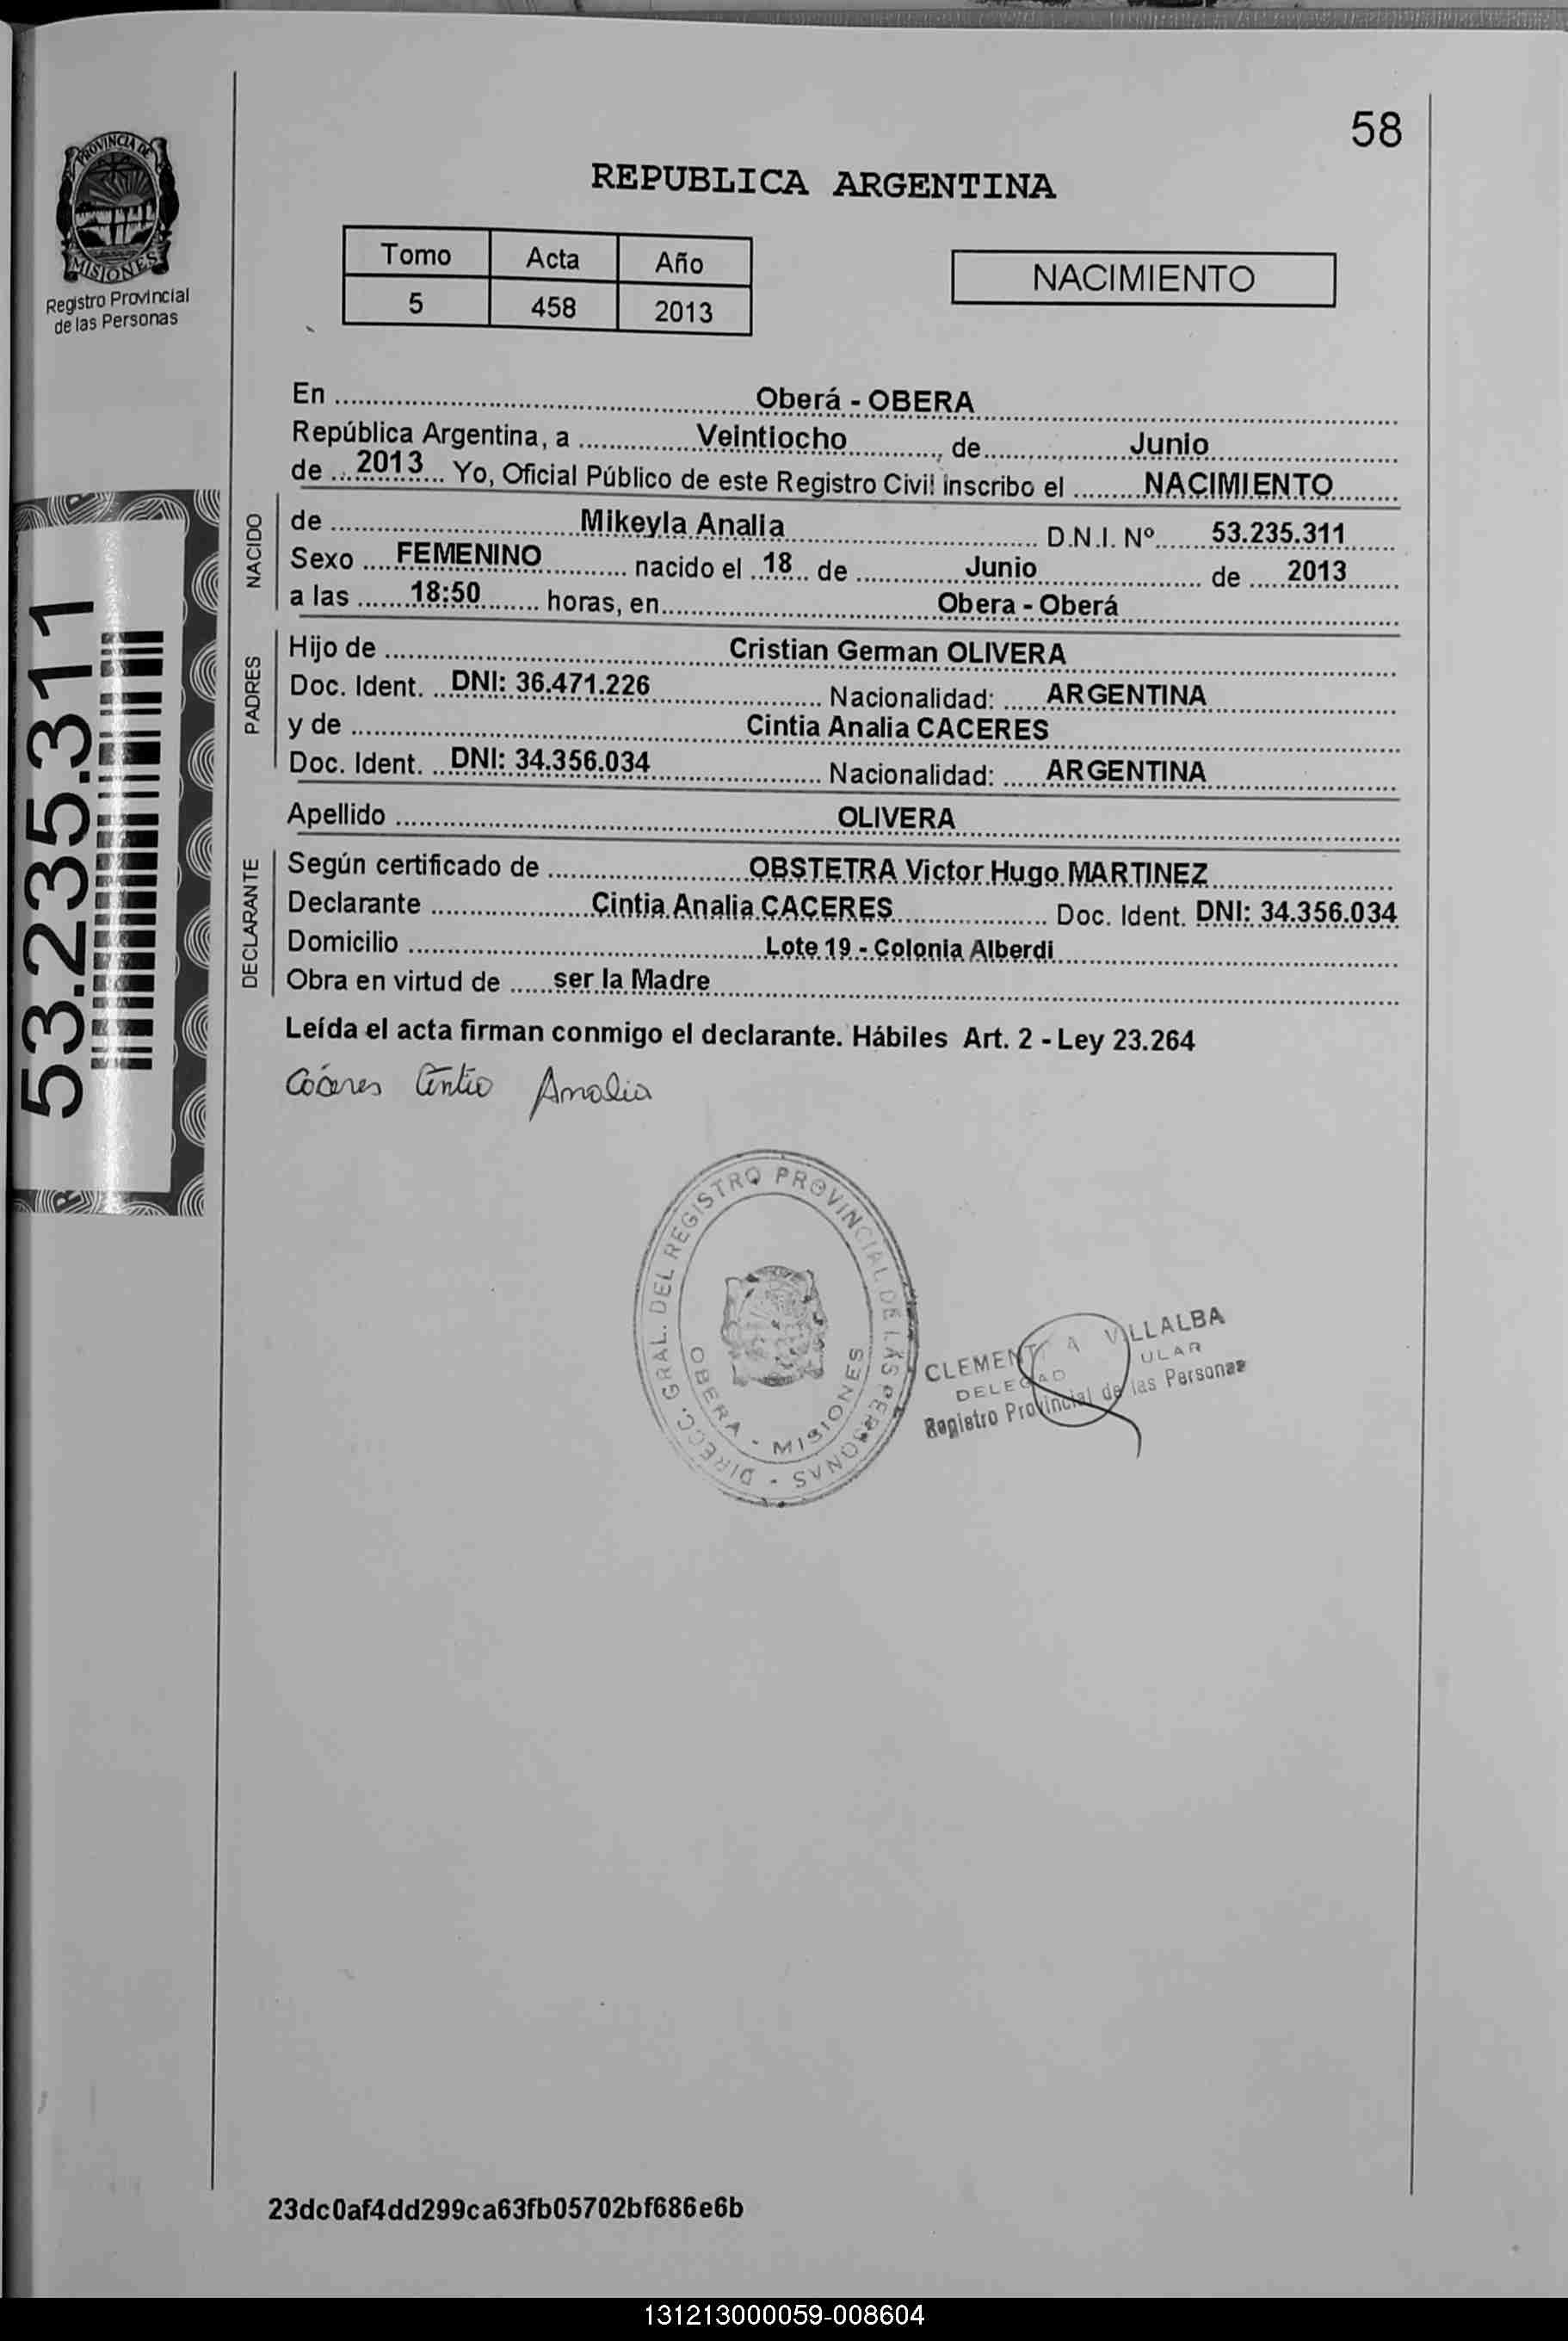 58
PROVINCIA DE
MISIONES
Registro Provincial
de las Personas
REPUBLICA ARGENTINA
Tomo Acta Año
5 458 2013
NACIMIENTO
En Oberá - OBERA
República Argentina, a Veintiocho, de Junio
de 2013 Yo, Oficial Público de este Registro Civil inscribo el NACIMIENTO
NACIDO
de Mikeyla Analia D.N.I. Nº 53.235.311
Sexo FEMENINO nacido el 18 de Junio de 2013
a las 18:50 horas, en Obera - Oberá
PADRES
Hijo de Cristian German OLIVERA
Doc. Ident. DNI: 36.471.226 Nacionalidad: ARGENTINA
y de Cintia Analia CACERES
Doc. Ident. DNI: 34.356.034 Nacionalidad: ARGENTINA
Apellido OLIVERA
DECLARANTE
Según certificado de OBSTETRA Victor Hugo MARTINEZ
Declarante Cintia Analia CACERES Doc. Ident. DNI: 34.356.034
Domicilio Lote 19 - Colonia Alberdi
Obra en virtud de ser la Madre
Leída el acta firman conmigo el declarante. Hábiles Art. 2 - Ley 23.264
Cáceres Cintia Analia
53.235.311
DIRECC. GRAL. DEL REGISTRO PROVINCIAL DE LAS PERSONAS -
OBERA - MISIONES
A VILLALBA
Registro Provincial de las Personas
23dc0af4dd299ca63fb05702bf686e6b
131213000059-008604